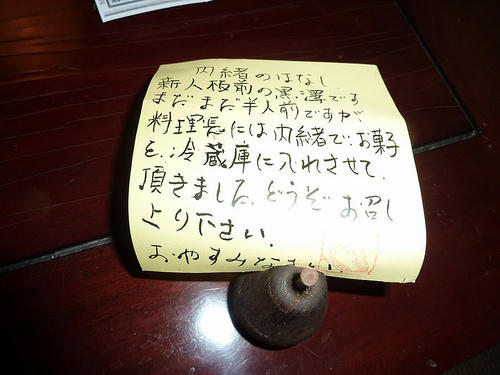 内緒のはなし
新人板前の黒澤です
まだまだ半人前ですが
料理長には内緒で、お菓子
を冷蔵庫に入れさせて
頂きました。どうぞお召し
上り下さい。
おやすみなさい